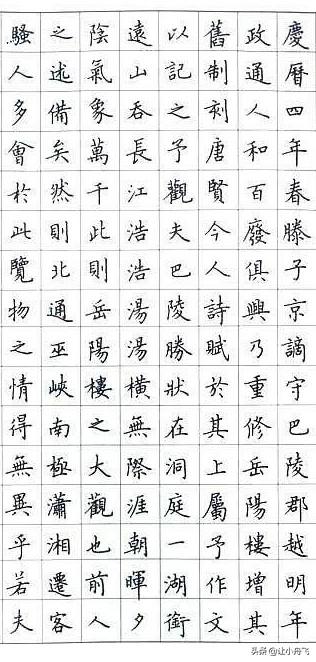 慶曆四年春滕子京謫守巴陵郡越明年
政通人和百廢俱興乃重修岳陽樓增其
舊制刻唐賢今人詩賦於其上屬予作文
以記之予觀夫巴陵勝狀在洞庭一湖銜
遠山吞長江浩浩湯湯橫無際涯朝暉夕
陰氣象萬千此則岳陽樓之大觀也前人
之述備矣然則北通巫峽南極瀟湘遷客
騷人多會於此覽物之情得無異乎若夫
头条 @让小舟飞